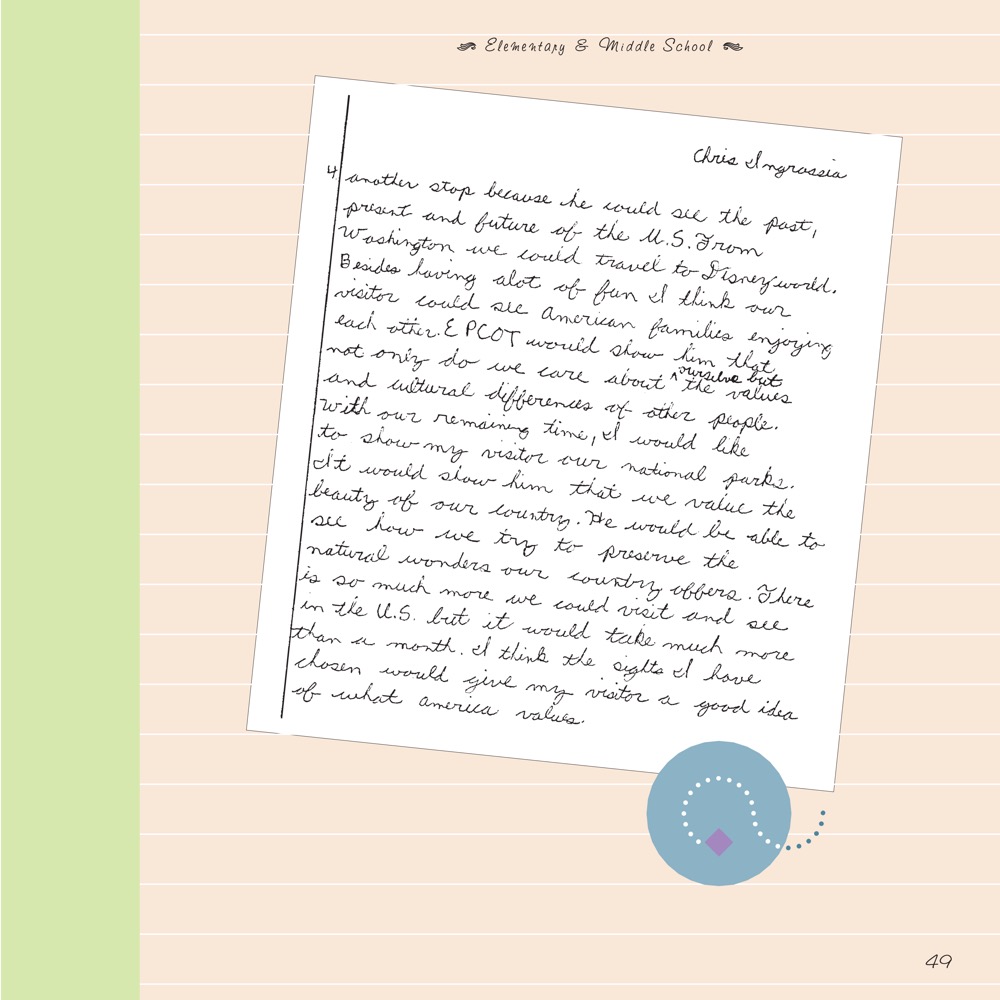 Elementary & Middle School
Chris Ingrassia
4 another stop because he could see the past,
present and future of the U.S. From
Washington we could travel to Disneyworld.
Besides having alot of fun I think our
visitor could see American families enjoying
each other. EPCOT would show him that
not only do we care about ^ ourselve but the values
and cultural differences of other people.
With our remaining time, I would like
to show my visitor our national parks.
It would show him that we value the
beauty of our country. He would be able to
see how we try to preserve the
natural wonders our country offers. There
is so much more we could visit and see
in the U.S. but it would take much more
than a month. I think the sights I have
chosen would give my visitor a good idea
of what america values.
49